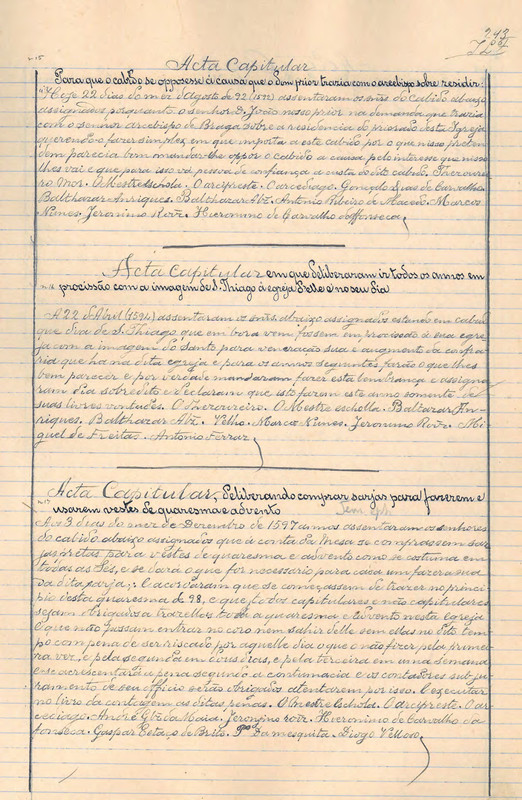 243
Acta Capitular
Para que o cabido se opposesse á causa que o Dom prior trazia com o arcebispo sobre rezidir:
"15
Hoje 22 dias do mez d'Agosto de 92 (1592) assentaram os snrs. do Cabido abaixo
assignados porquanto o senhor D. João nosso prior na demanda que trazia
com o senhor arcebispo de Braga sobre a residencia do priorado desta Igreja
querendo o fazer simples, em que importa a este cabido por o que nisso preten
dem parecia bem mandar-lhe oppor o cabido a causa pelo interesse que nisso
lhes vai e que para isso vá pessoa de confiança á custa do dito cabido. Thezourei
ro Mor. O Mestre eschola. O arcipreste. O arcediago. Gonçalo Dias de Carvalho.
Balthazar Anriques. Balthazar Alz. Antonio Ribeiro de Macedo. Marcos
Nunes. Jeronimo Rorz. Hieronimo de Carvalho daffonseca.
Acta Capitular em que deliberaram ir todos os annos em
"16 procissão com a imagem de S. Thiago á egreja deste e no seu dia
A 22 d'Abril (1594) assentaram os snrs. abaixo assignados estando em cabido
que dia de S. Thiago que em bora vem fossem em procissão á sua egre
ja com a imagem do Santo para veneração sua e augmento da confra
ria que ha na dita egreja e para os annos seguintes farão o que lhes
bem parecer e por verdade mandaram fazer esta lembrança e assigna
ram dia sobredito e declaram que isto faram este anno somente de
suas livres vontades. O Thezoureiro. O Mestre escholla. Baltazar An-
riques. Balthazar Alz. Velho. Marco Nunes. Jeronimo Rorz. Mi
guel de Freitas. Antonio Ferraz
Acta Capitular, deliberando comprar sarjas para fazerem e
"17 usarem vestes de quaresma e advento
Aos 3 dias do mez de Dezembro de 1597 annos assentaram os senhores
do cabido abaixo assignados que á conta da Meza se comprassem sar
jas pretas para vestes de quaresma e advento como se costuma em
todas as Sés, e se dará o que for necessario para cada um fazer a sua
da dita sarja; E accordaram que se começassem de trazer no princi
pio desta quaresma de 98, e que todos capitulares e não capitulares
sejam obrigados a trazellos toda a quaresma e Advento nesta Egreja
O que não possam entrar no coro nem sahir delle sem ellas no dito tem
po com pena de ser riscado por aquelle dia o que o não fizer pela primei
ra vez, e pela segunda em dous dias, e pela terceira em uma semana
e se acrescentará a pena segundo a contumacia e os contadores sub jur
ramento de seu officio serão obrigados atentarem por isso. E executar
no livro da contagem as ditas penas. O mestre Eschola. O arcipreste. O ar
cediago. André Glz da Maia. Jeronimo rorz. Hieronimo de Carvalho da
fonseca. Gaspar Estaço de Brito. da mesquita. Diogo Velloso.